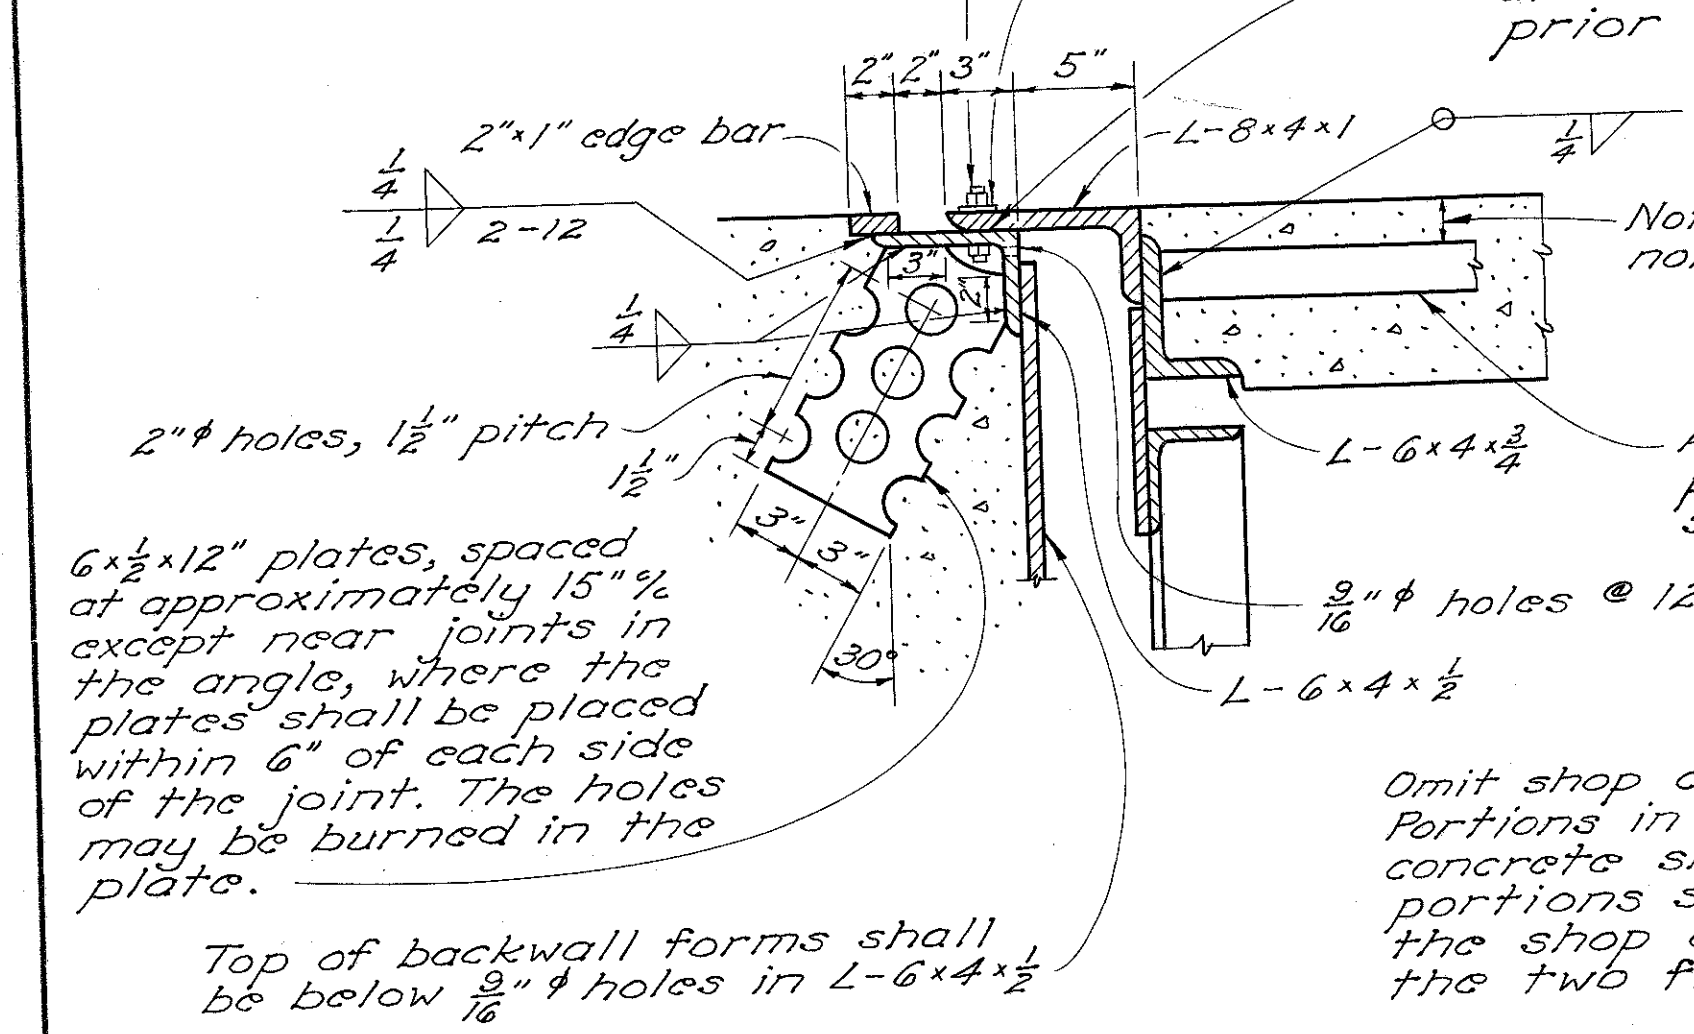 prior
2" 2" 3" 5"
2"×1" edge bar
L-8×4×1
1/4
1/4
2-12
1/4
3"
2"
1/4
2"φ holes, 1 1/2" pitch
1 1/2"
L-6×4×3/4
3"
3"
30°
6×1/2×12" plates, spaced
at approximately 15" %
except near joints in
the angle, where the
plates shall be placed
within 6" of each side
of the joint. The holes
may be burned in the
plate.
9/16"φ holes @ 12
L-6×4×1/2
Top of backwall forms shall
be below 9/16"φ holes in L-6×4×1/2
Omit shop
Portions in
concrete
portions
the shop
the two